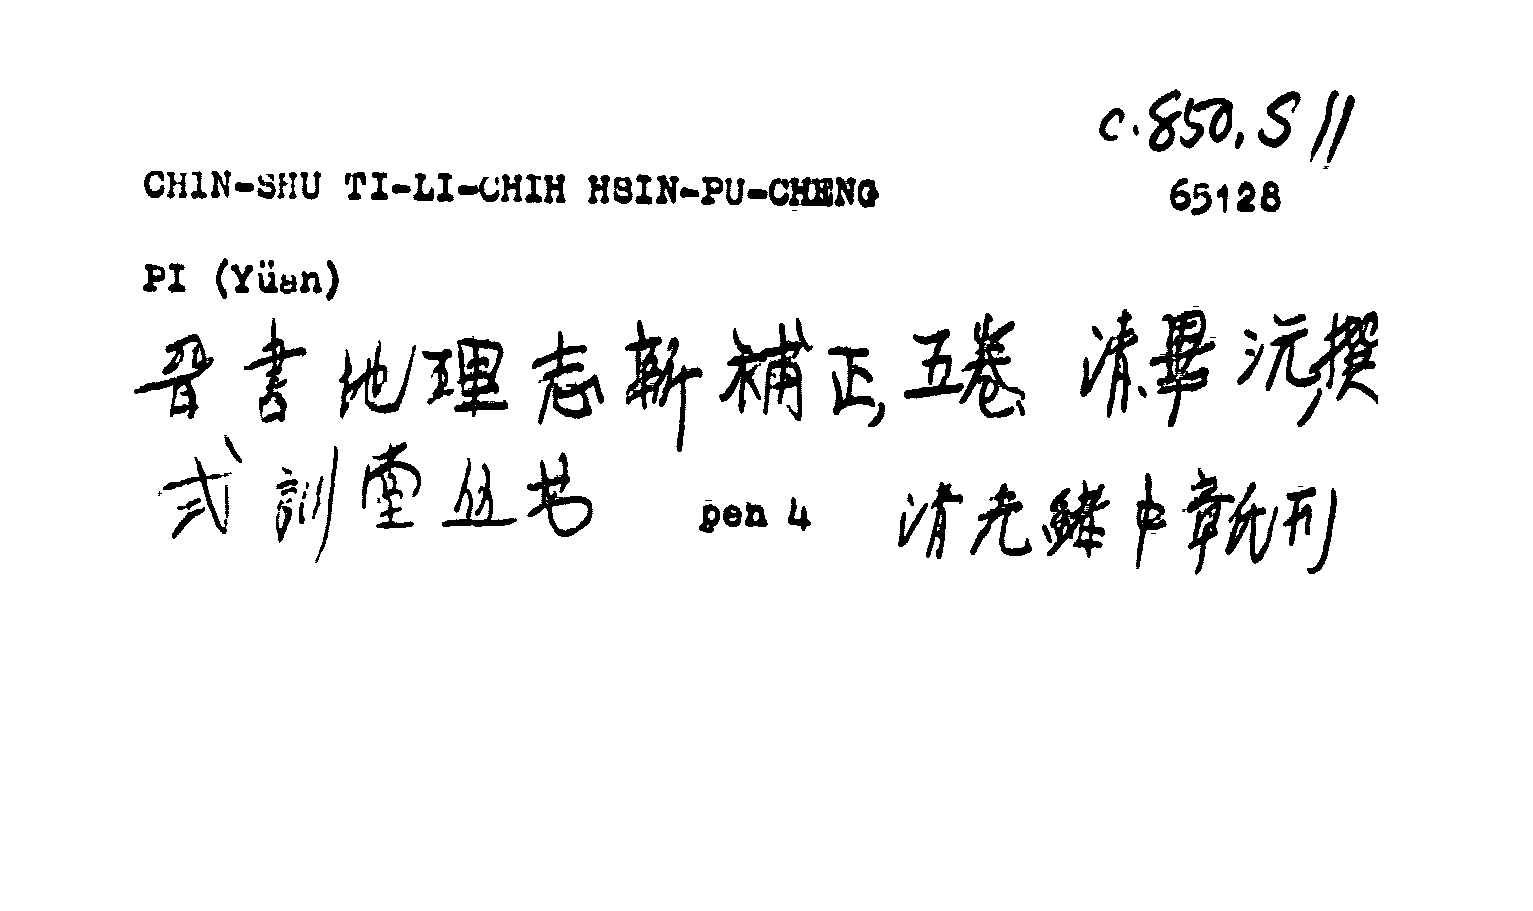 c.850.S11
CHIN-SHU TI-LI-CHIH HSIN-PU-CHENG 65128
PI (Yüan)
晋書地理志新補正,五卷 清畢沅撰
式訓堂丛书 pen 4 清光緒中章氏刊